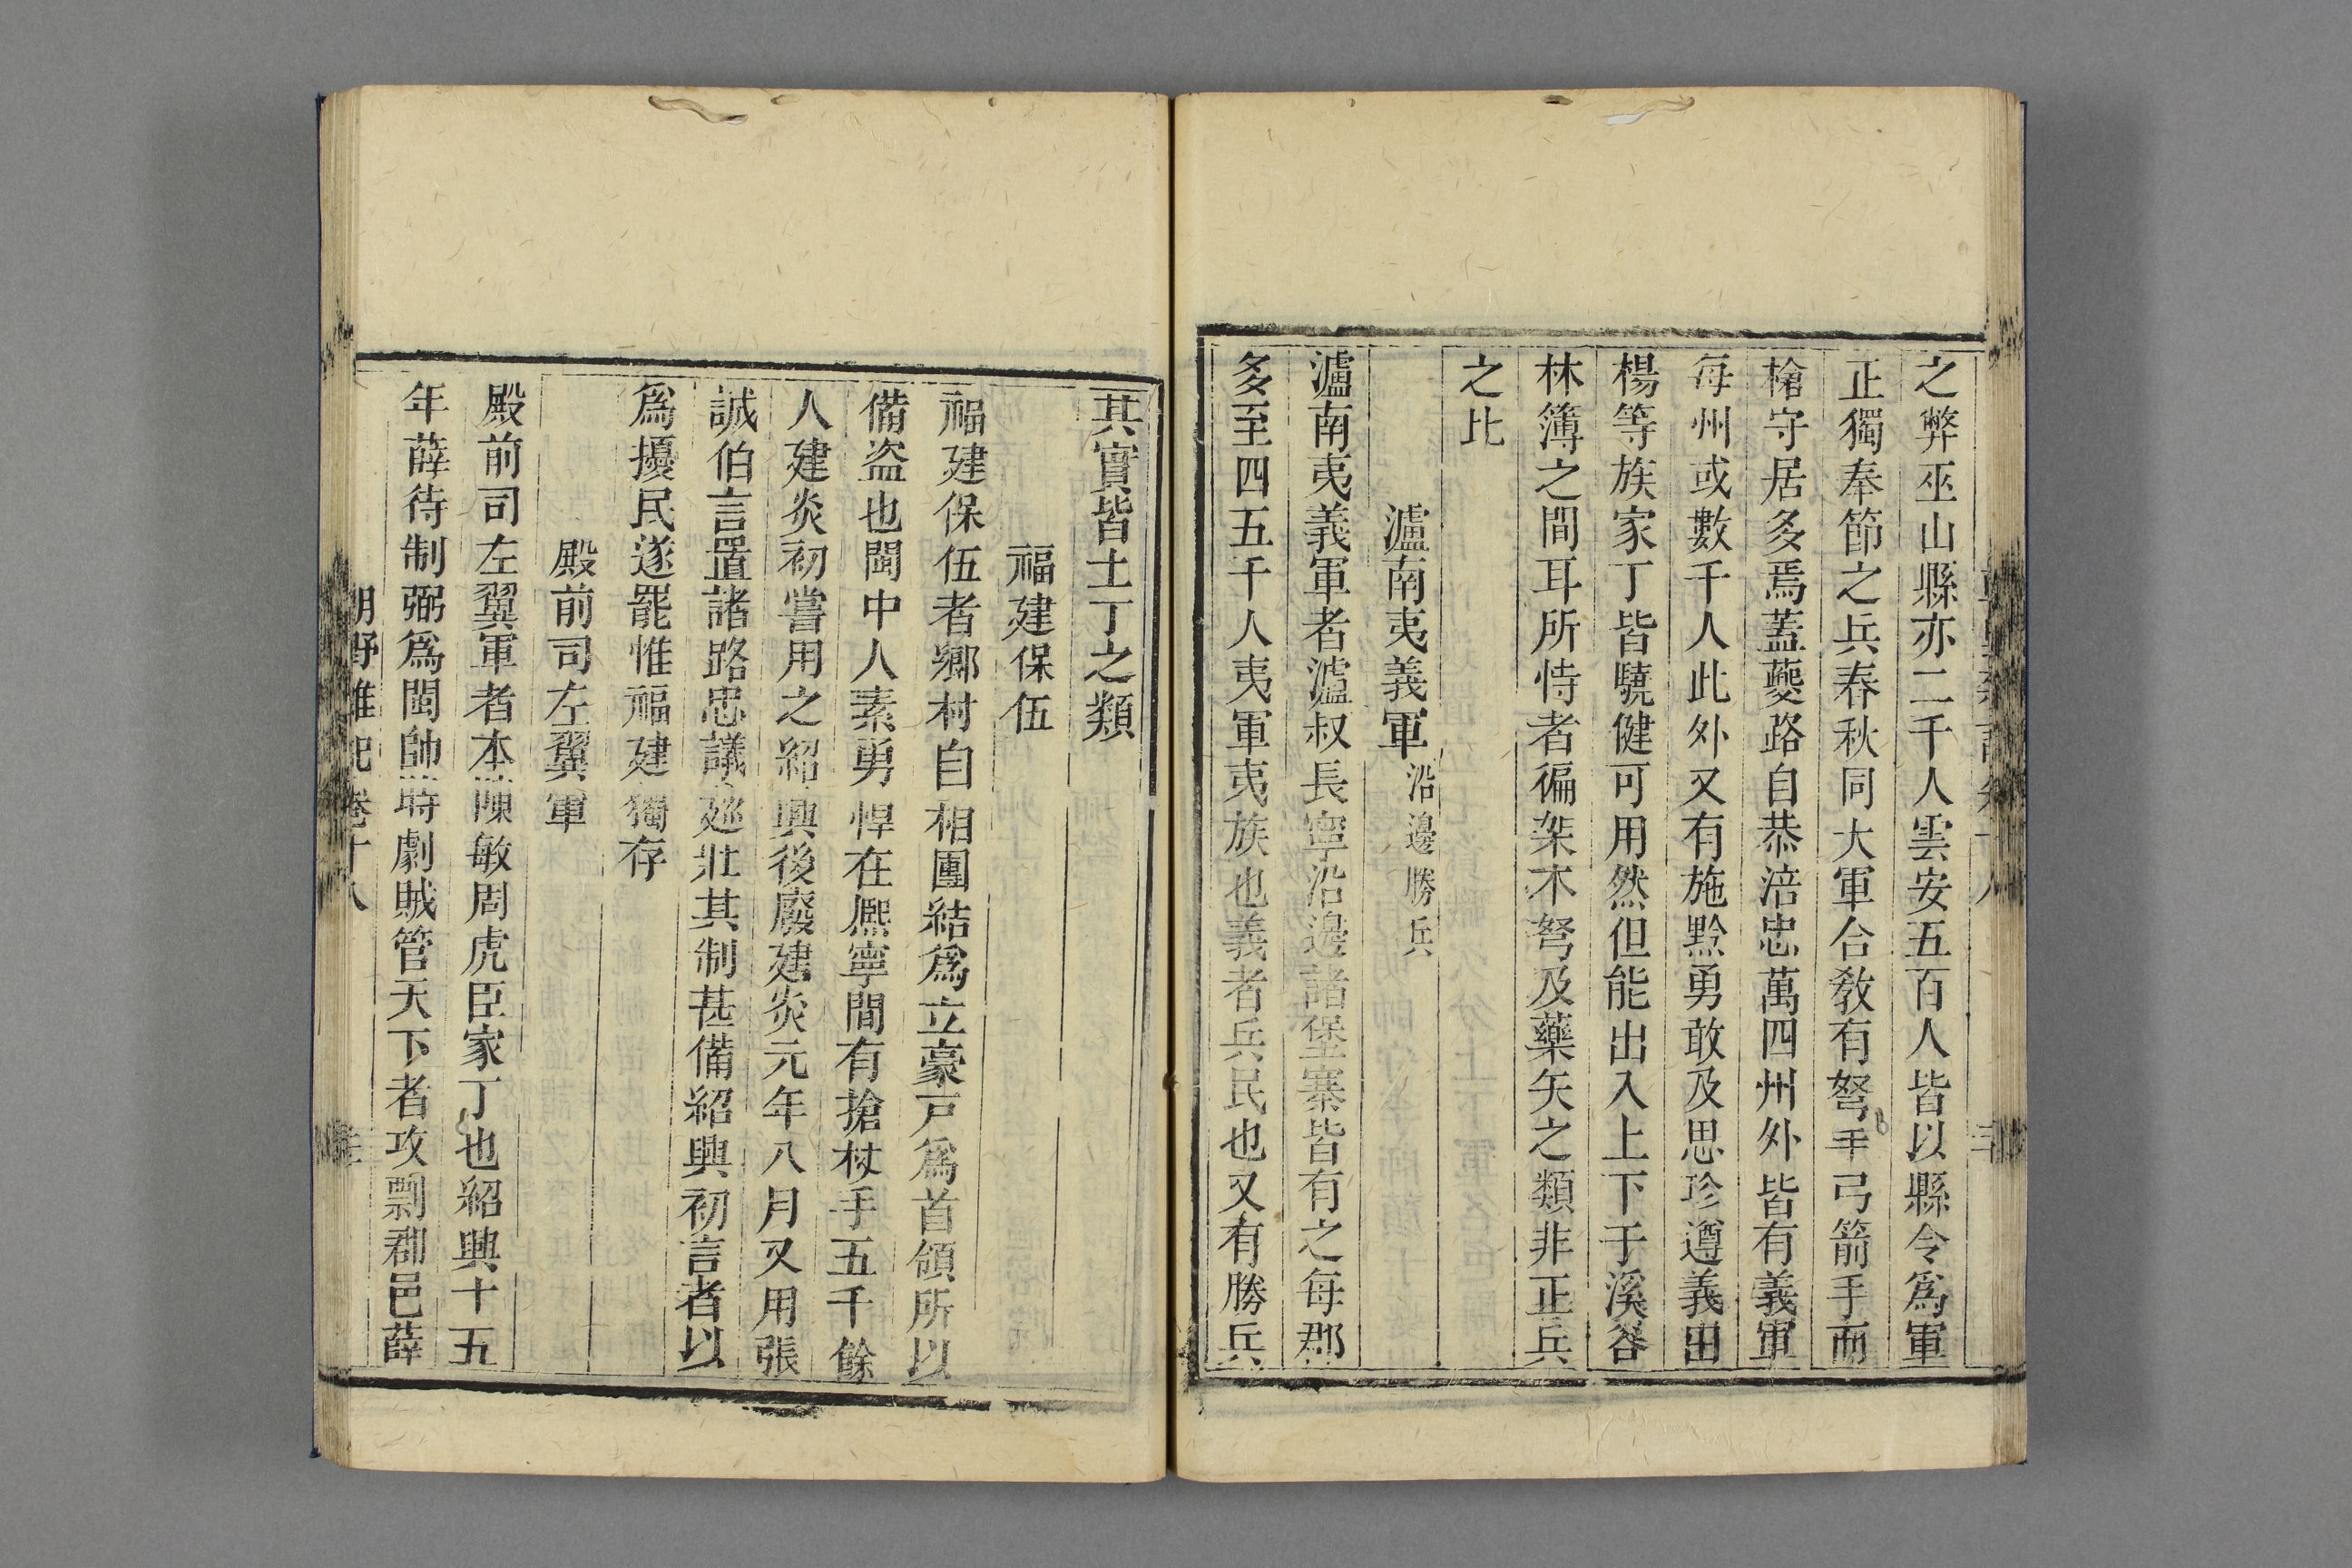 之弊巫山縣亦二千人雲安五百人皆以縣令爲軍
正獨奉節之兵春秋同大軍合教有弩手弓箭手而
槍守居多焉蓋夔路自恭涪忠萬四州外皆有義軍
每州或數千人此外又有施黔勇敢及思珍遵義田
楊等族家丁皆驍健可用然但能出入上下于溪谷
林簿之間耳所恃者徧架木弩及藥矢之類非正兵
之比
瀘南夷義軍沿邊勝兵
瀘南夷義軍者瀘叔長寧沿邊諸堡寨皆有之每郡
多至四五千人夷軍夷族也義者兵民也又有勝兵
其實皆土丁之類
福建保伍
福建保伍者鄉村自相團結爲立豪戸爲首領所以
備盜也閩中人素勇悍在熈寧間有搶杖手五千餘
人建炎初嘗用之紹興後廢建炎元年八月又用張
誠伯言置諸路忠議廵壯其制甚備紹興初言者以
爲擾民遂罷惟福建獨存
殿前司左翼軍
殿前司左翼軍者本陳敏周虎臣家丁也紹興十五
年薛待制弼爲閩帥時劇賊管天下者攻剽郡邑薛
朝野雜記卷十八